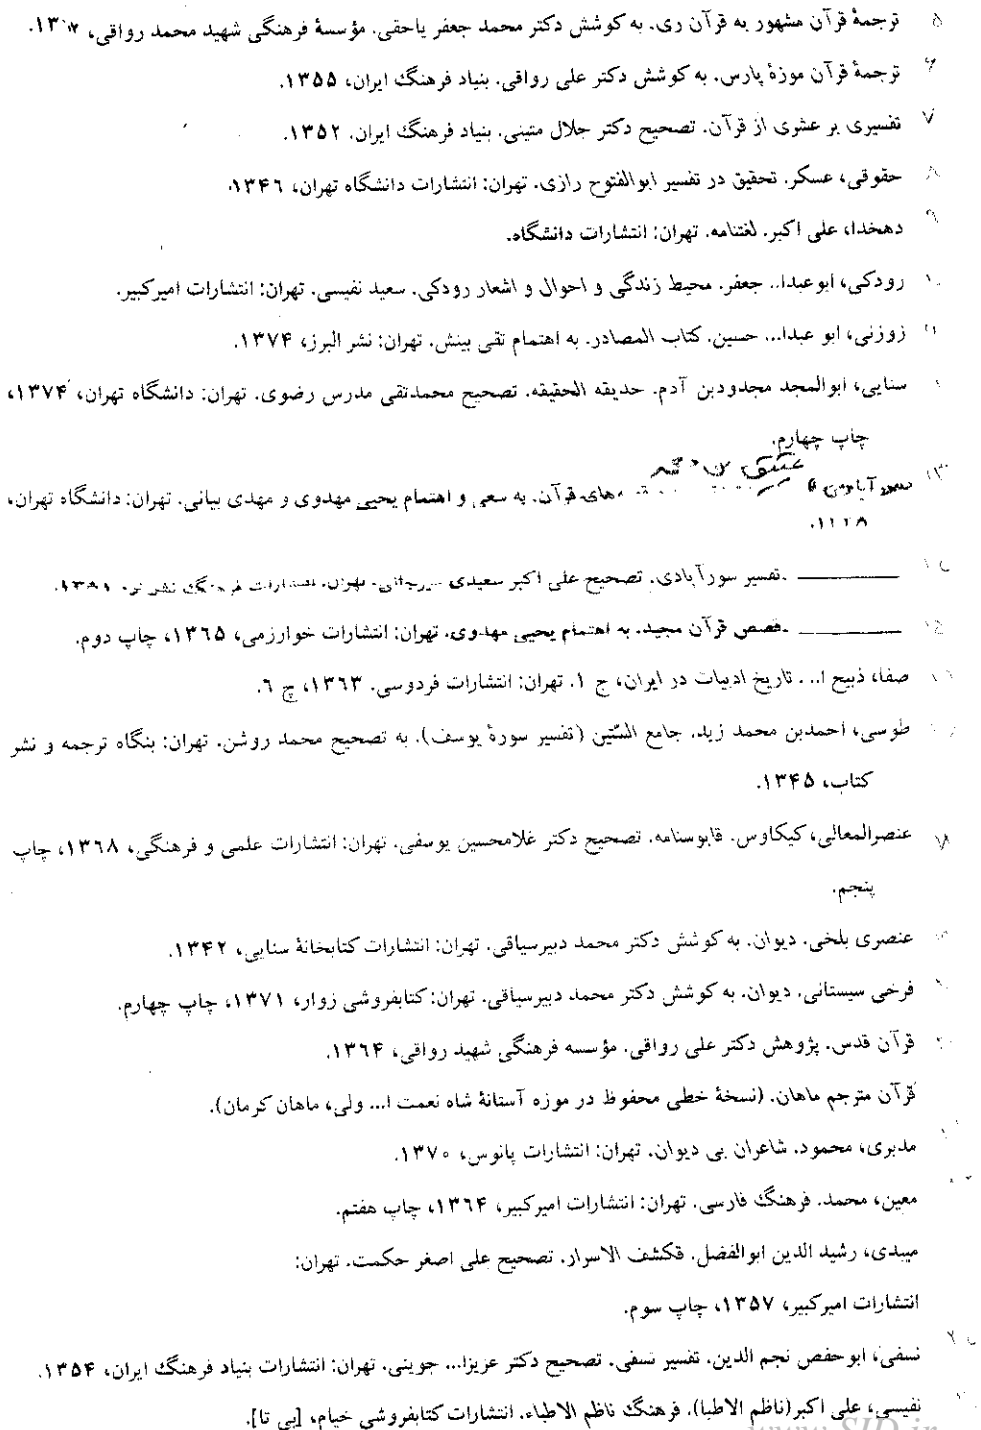 ۵ ترجمهٔ قرآن مشهور به قرآن ری. به کوشش دکتر محمد جعفر یاحقی. مؤسسهٔ فرهنگی شهید محمد رواقی،
ترجمهٔ قرآن موزهٔ پارس. به کوشش دکتر علی رواقی. بنیاد فرهنگ ایران، ۱۳۵۵.
۷ تفسیری بر عشری از قرآن. تصحیح دکتر جلال متینی. بنیاد فرهنگ ایران. ۱۳۵۲.
۸ حقوقی، عسکر. تحقیق در تفسیر ابوالفتوح رازی. تهران: انتشارات دانشگاه تهران، ۱۳۴۶.
۹ دهخدا، علی اکبر. لغتنامه. تهران: انتشارات دانشگاه.
رودکی، ابوعبدا.. جعفر. محیط زندگی و احوال و اشعار رودکی. سعید نفیسی. تهران: انتشارات امیرکبیر.
زوزنی، ابو عبدا... حسین. کتاب المصادر. به اهتمام تقی بینش. تهران: نشر البرز، ۱۳۷۴.
سنایی، ابوالمجد مجدودبن آدم. حدیقه الحقیقه. تصحیح محمدتقی مدرس رضوی. تهران: دانشگاه تهران، ۱۳۷۴،
چاپ چهارم.
۱۳ عتیق های قرآن. به سعی و اهتمام یحیی مهدوی و مهدی بیانی. تهران: دانشگاه تهران،
ــــــــــــ .تفسیر سورآبادی. تصحیح علی اکبر سعیدی سیرجانی. تهران. انتشارات فرهنگ نشر نو.
۱۵ ــــــــــــ .قصص قرآن مجید. به اهتمام یحیی مهدوی. تهران: انتشارات خوارزمی، ۱۳۶۵، چاپ دوم.
صفا، ذبیح ا... تاریخ ادبیات در ایران، ج ۱. تهران: انتشارات فردوسی. ۱۳۶۳، چ ۶.
طوسی، احمدبن محمد زید. جامع الستّین (تفسیر سورهٔ یوسف). به تصحیح محمد روشن. تهران: بنگاه ترجمه و نشر
کتاب، ۱۳۴۵.
۱۸ عنصرالمعالی، کیکاوس. قابوسنامه. تصحیح دکتر غلامحسین یوسفی. تهران: انتشارات علمی و فرهنگی، ۱۳۶۸، چاپ
پنجم.
عنصری بلخی. دیوان. به کوشش دکتر محمد دبیرسیاقی. تهران: انتشارات کتابخانهٔ سنایی، ۱۳۴۲.
فرخی سیستانی. دیوان. به کوشش دکتر محمد دبیرسیاقی. تهران: کتابفروشی زوار، ۱۳۷۱، چاپ چهارم.
قرآن قدس. پژوهش دکتر علی رواقی. مؤسسه فرهنگی شهید رواقی، ۱۳۶۴.
قرآن مترجم ماهان. (نسخهٔ خطی محفوظ در موزه آستانهٔ شاه نعمت ا... ولی، ماهان کرمان).
مدبری، محمود. شاعران بی دیوان. تهران: انتشارات پانوس، ۱۳۷۰.
معین، محمد. فرهنگ فارسی. تهران: انتشارات امیرکبیر، ۱۳۶۴، چاپ هفتم.
میبدی، رشید الدین ابوالفضل. قکشف الاسرار. تصحیح علی اصغر حکمت. تهران:
انتشارات امیرکبیر، ۱۳۵۷، چاپ سوم.
نسفی، ابوحفص نجم الدین. تفسیر نسفی. تصحیح دکتر عزیزا... جوینی. تهران: انتشارات بنیاد فرهنگ ایران، ۱۳۵۴.
نفیسی، علی اکبر(ناظم الاطبا). فرهنگ ناظم الاطباء. انتشارات کتابفروشی خیام، [بی تا].
www.SID.ir